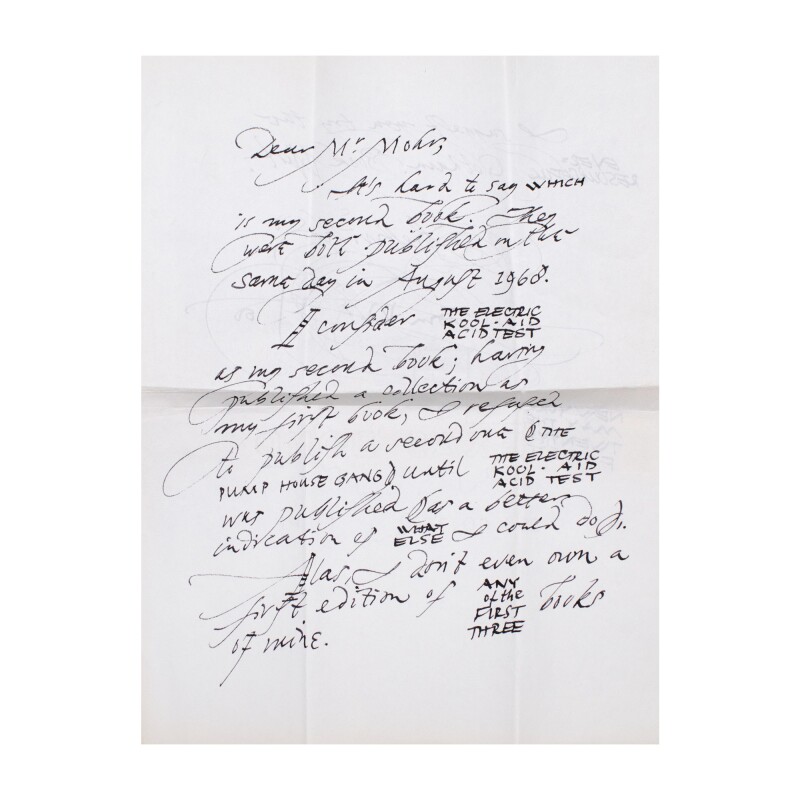 Dear Mr Mohr,
It's hard to say WHICH
is my second book. They
were both published on the
same day in August 1968.
I consider THE ELECTRIC KOOL-AID ACID TEST
as my second book; having
published a collection as
my first book, I refused
to publish a second one (THE
PUMP HOUSE GANG) until THE ELECTRIC KOOL-AID ACID TEST
was published (as a better
indication of WHAT ELSE I could do).
Alas, I don't even own a
first edition of ANY of the FIRST THREE books
of mine.